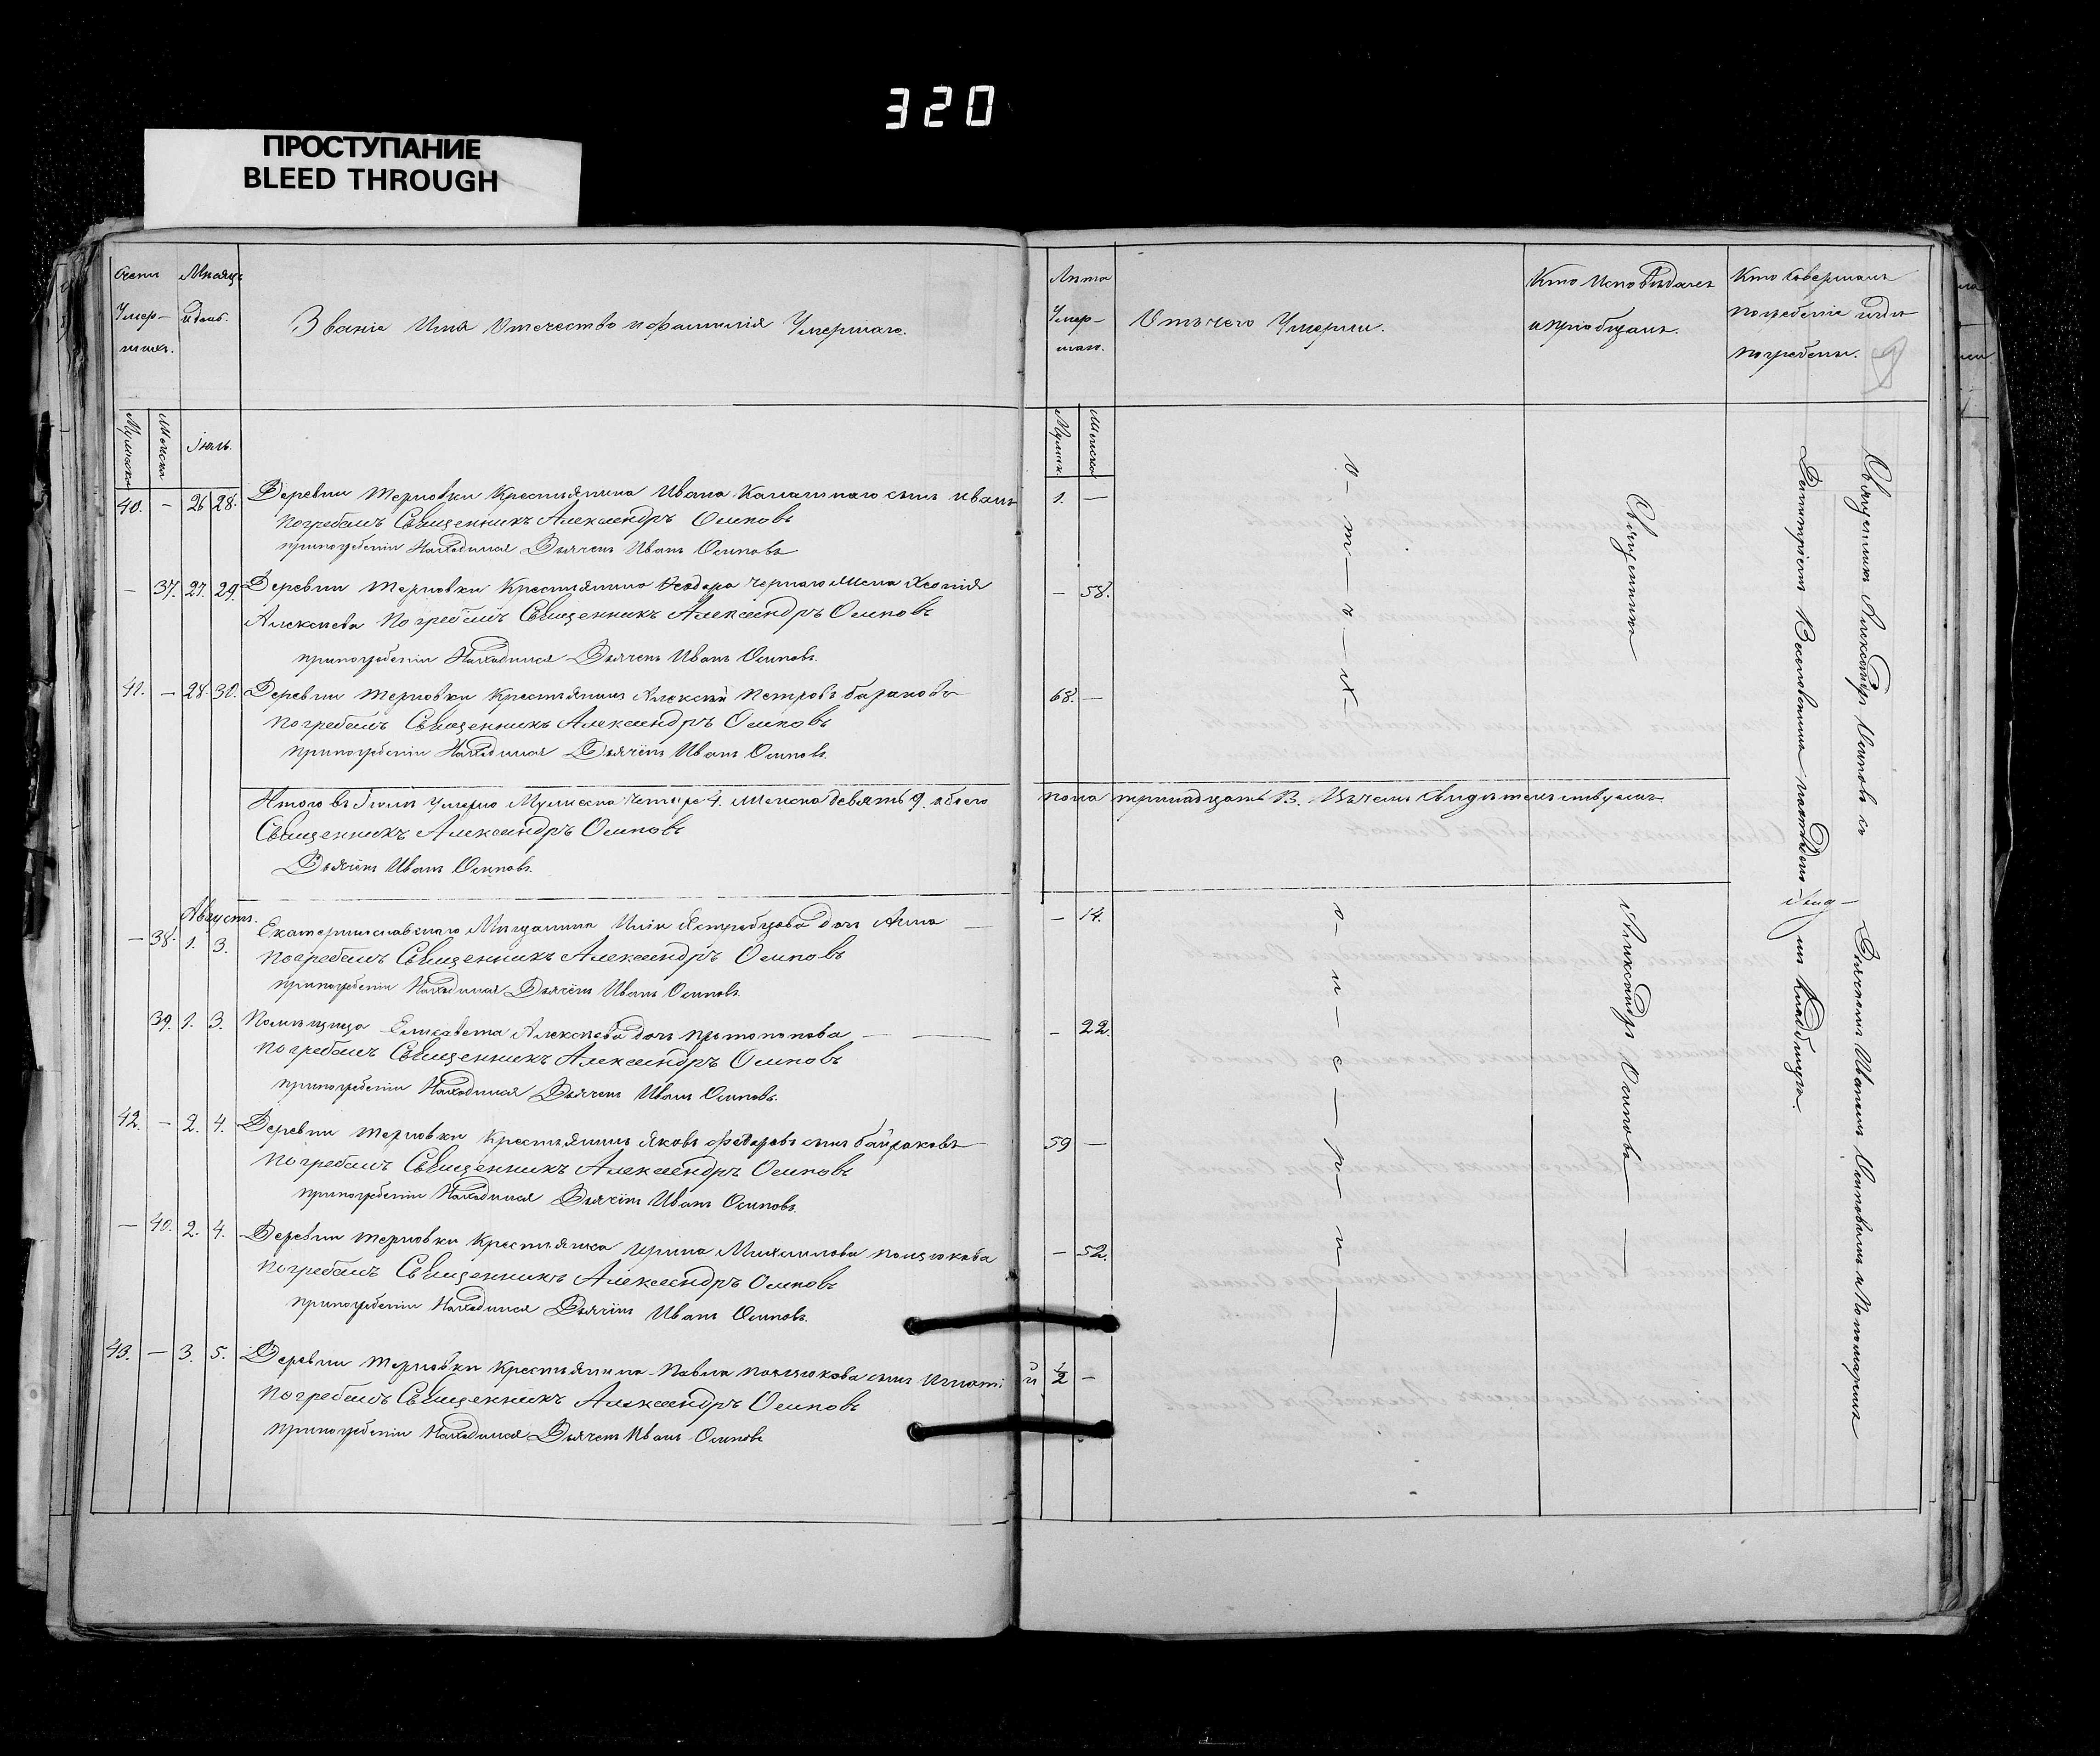 320
ПРОСТУПАНИЕ
BLEED THROUGH
Счетъ Умер-шихъ.
Мѣсяцъ и день.
Званіе Имя Отечество и фамилія Умершаго.
Лѣта Умер-шаго.
Отъ чего Умерли.
Кто Исповѣдалъ и пріобщалъ.
Кто Совершалъ погребеніе и гдѣ погребены.
Мужеска Женска Іюль.
Мужеск. Женска
40. — 26 28. Деревни Терновки Крестьянина Ивана сынъ Иванъ 1. —
Погребалъ Священникъ Александръ Осиповъ
при погребеніи Находился Дьячекъ Иванъ Осиповъ
— 37. 27. 29. Деревни Терновки Крестьянина Ѳеодора Чернаго Жена Ксенія — 58.
Алексѣева Погребалъ Священникъ Александръ Осиповъ
при погребеніи Находился Дьячекъ Иванъ Осиповъ.
41. — 28. 30. Деревни Терновки Крестьянинъ Алексѣй Петровъ 68. —
Погребалъ Священникъ Александръ Осиповъ
при погребеніи Находился Дьячекъ Иванъ Осиповъ.
Итого въ Іюлѣ Умерло Мужеска четыре 4. Женска девять 9. обоего пола тринадцать 13. Въ чемъ свидѣтельствуемъ
Священникъ Александръ Осиповъ
Дьячекъ Иванъ Осиповъ.
Августъ.
— 38. 1. 3. Екатеринославскаго Мѣщанина Ильи Ястребцова дочь Анна — 14.
Погребалъ Священникъ Александръ Осиповъ
при погребеніи Находился Дьячекъ Иванъ Осиповъ.
39. 1. 3. Помѣщица Елисавета Алексѣева дочь Протопопова — 22.
Погребалъ Священникъ Александръ Осиповъ
при погребеніи Находился Дьячекъ Иванъ Осиповъ.
42. — 2. 4. Деревни Терновки Крестьянинъ Яковъ Федоровъ сынъ Байраковъ 59 —
Погребалъ Священникъ Александръ Осиповъ
при погребеніи Находился Дьячекъ Иванъ Осиповъ.
— 40. 2. 4. Деревни Терновки Крестьянка Ирина Михаилова — 52.
Погребалъ Священникъ Александръ Осиповъ
при погребеніи Находился Дьячекъ Иванъ Осиповъ.
43. — 3. 5. Деревни Терновки Крестьянина Павла сынъ Игнатій 1/2 —
Погребалъ Священникъ Александръ Осиповъ
при погребеніи Находился Дьячекъ Иванъ Осиповъ
Священникъ
Александръ Осиповъ
Священникъ Александръ Осиповъ съ Дьячкомъ Иваномъ Осиповымъ и Пономаремъ
на кладбищѣ.